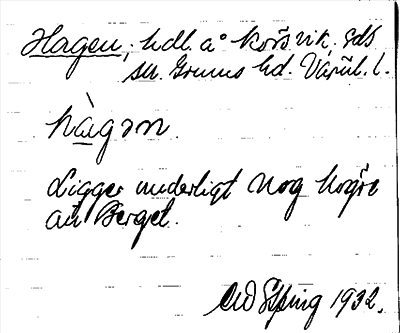 Hagen, hdl. å Korsvik, Eds
sn. Grums hd. Värml. l.
hàgǝn
Ligger underligt nog högre
än Berget.
1932.